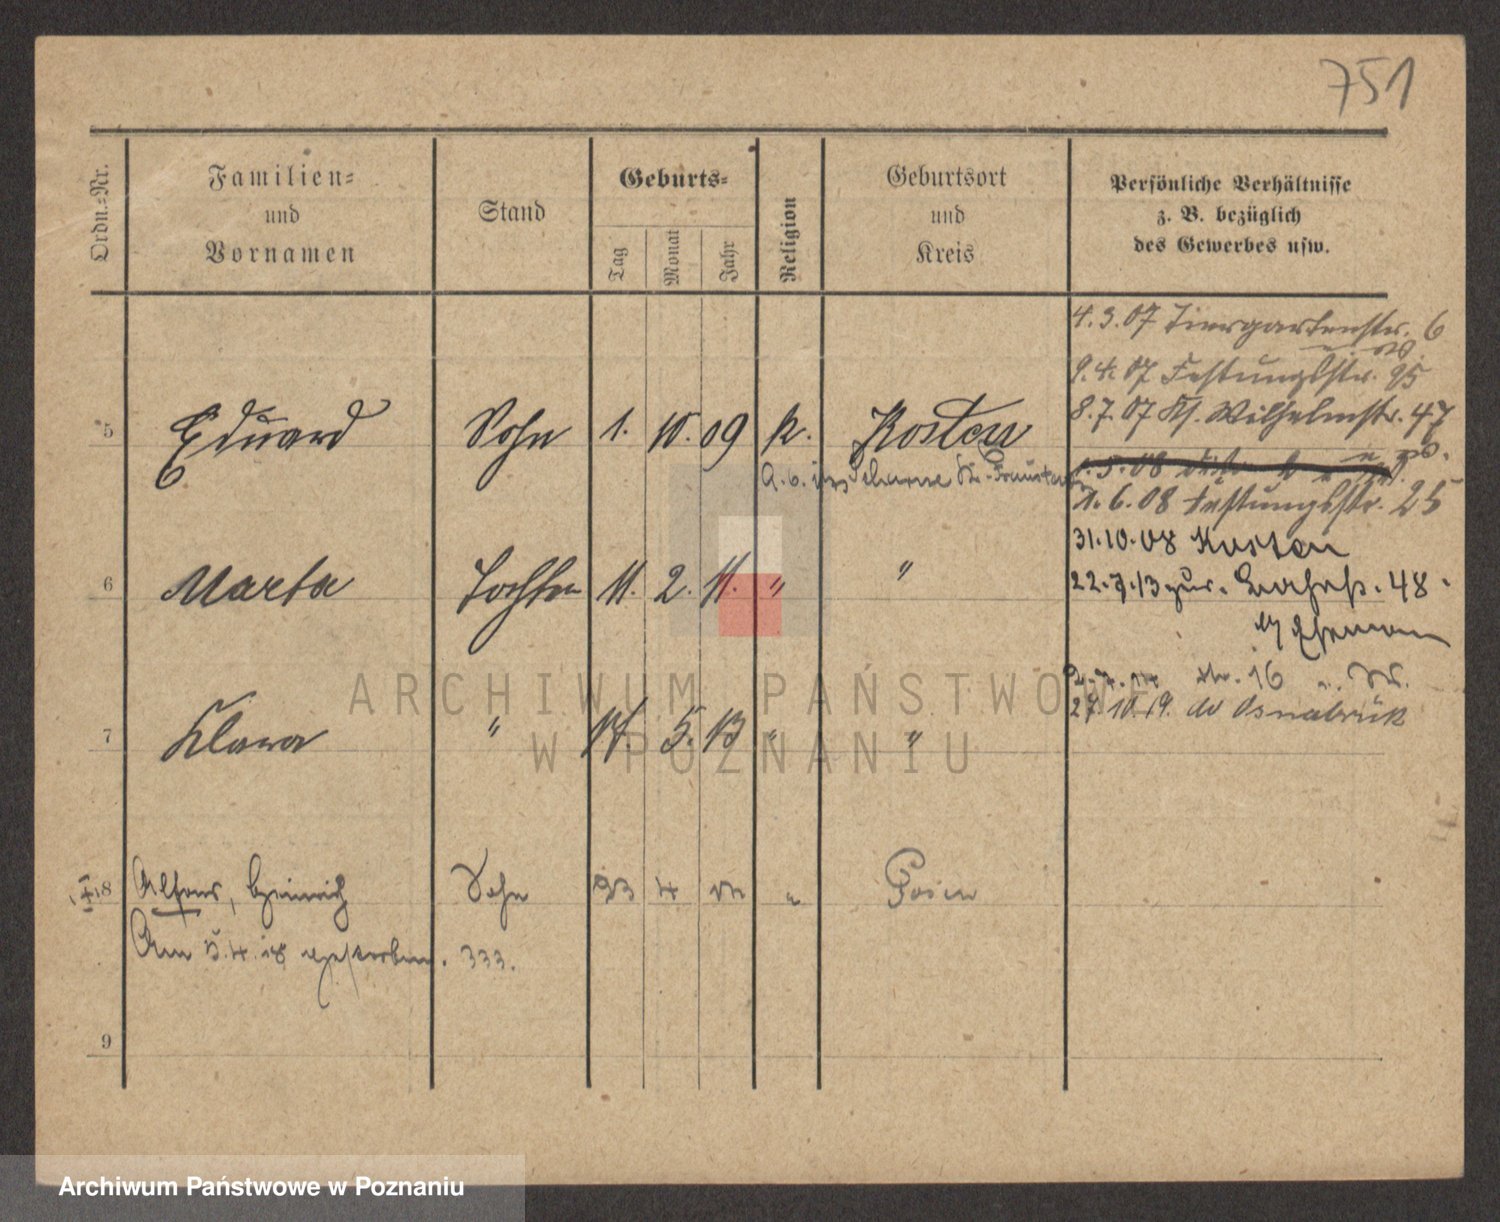 751
Ordn.-Nr.
Familien-
und
Vornamen
Stand
Geburts-
Tag
Monat
Jahr
Religion
Geburtsort
und
Kreis
Persönliche Verhältnisse
z. B. bezüglich
des Gewerbes usw.
4.3.07 Tiergartenstr. 6
9.4.07 Festungsstr. 25
8.7.07 Kl. Wilhelmstr. 47
5 Eduard Sohn 1. 10. 09 k. Kosten
1.6.08 Festungsstr. 25
31.10.08 Kosten
6 Marta Tochter 11. 2. 11. " "
22.7.13 zur. 48.
Ehemann
16
27.10.19. Osnabrück
7 Klara " 17. 5. 13 " "
8 Alfons, Heinrich Sohn 23 4 " Posen
Am 5.4.18 gestorben. 333.
9
ARCHIWUM PAŃSTWOWE
W POZNANIU
Archiwum Państwowe w Poznaniu